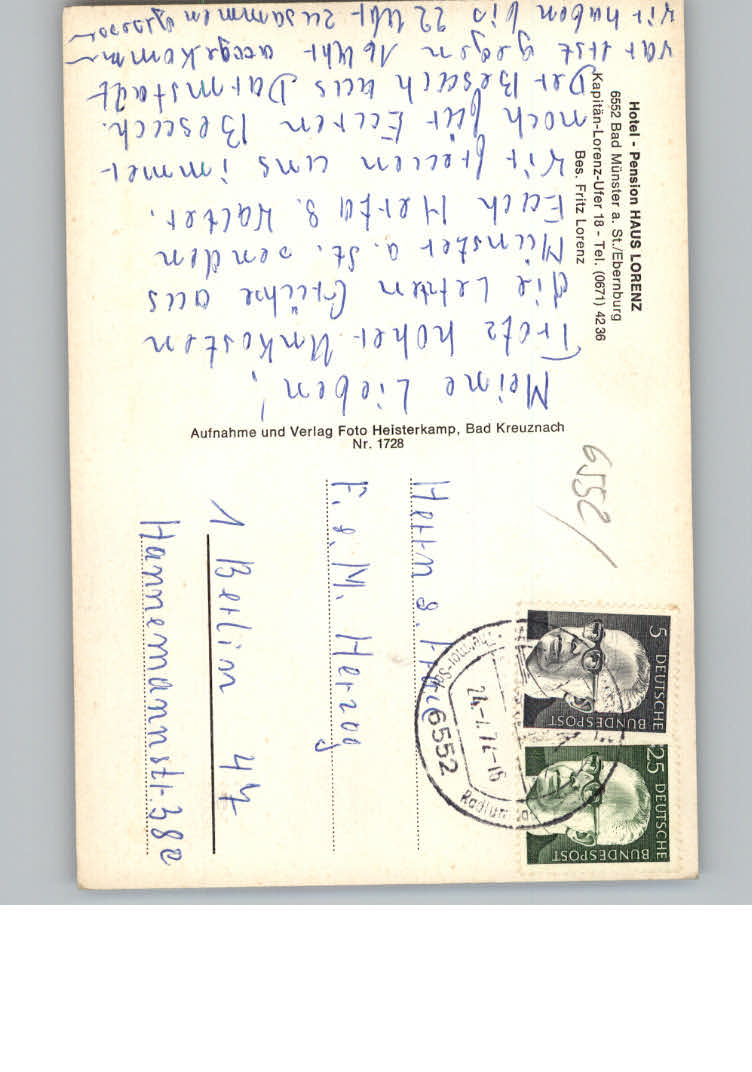 Hotel - Pension HAUS LORENZ
6552 Bad Münster a. St./Ebernburg
Kapitän-Lorenz-Ufer 18 - Tel. (0671) 42 36
Bes. Fritz Lorenz
Meine Lieben!
Trotz hoher Unkosten
die letzten Grüße aus
Münster a. St. senden
Euch Herta u. Walter.
Wir freuen uns immer
noch für Euren Besuch.
Der Besuch aus Darmstadt
war erst gegen 16 Uhr
wir haben bis 22 Uhr zusammen gesessen
Aufnahme und Verlag Foto Heisterkamp, Bad Kreuznach
Nr. 1728
6552/
5 DEUTSCHE
BUNDESPOST
25 DEUTSCHE
BUNDESPOST
6552
Herrn u. Frau
F. u. M. Herzog
1 Berlin 47
Hannemannstr.